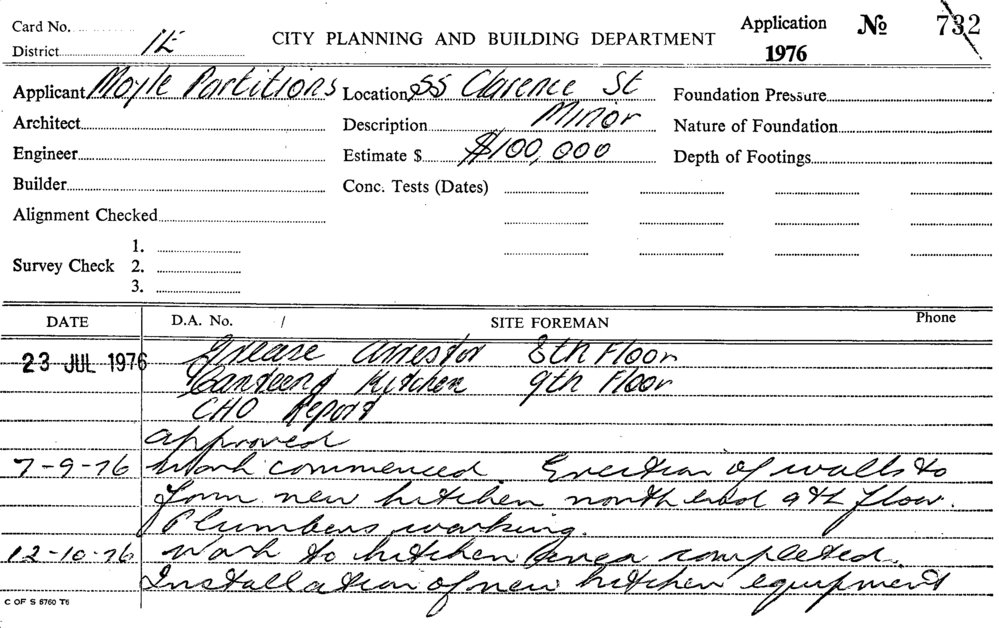 Card No.
Application № 732
District 1E CITY PLANNING AND BUILDING DEPARTMENT 1976
Applicant Moyle Partitions Location 55 Clarence St Foundation Pressure
Architect Description Minor Nature of Foundation
Engineer Estimate $ $100,000 Depth of Footings
Builder Conc. Tests (Dates)
Alignment Checked
1.
Survey Check 2.
3.
DATE D.A. No. / SITE FOREMAN Phone
23 JUL 1976 Grease Arrestor 8th Floor
Kitchen 9th Floor
CHO Report
approved
7-9-76 Work commenced Erection of walls to
form new kitchen north end 9th floor.
Plumbers working.
12-10-76 Work to kitchen area completed.
Installation of new kitchen equipment
C OF S 6760 T6